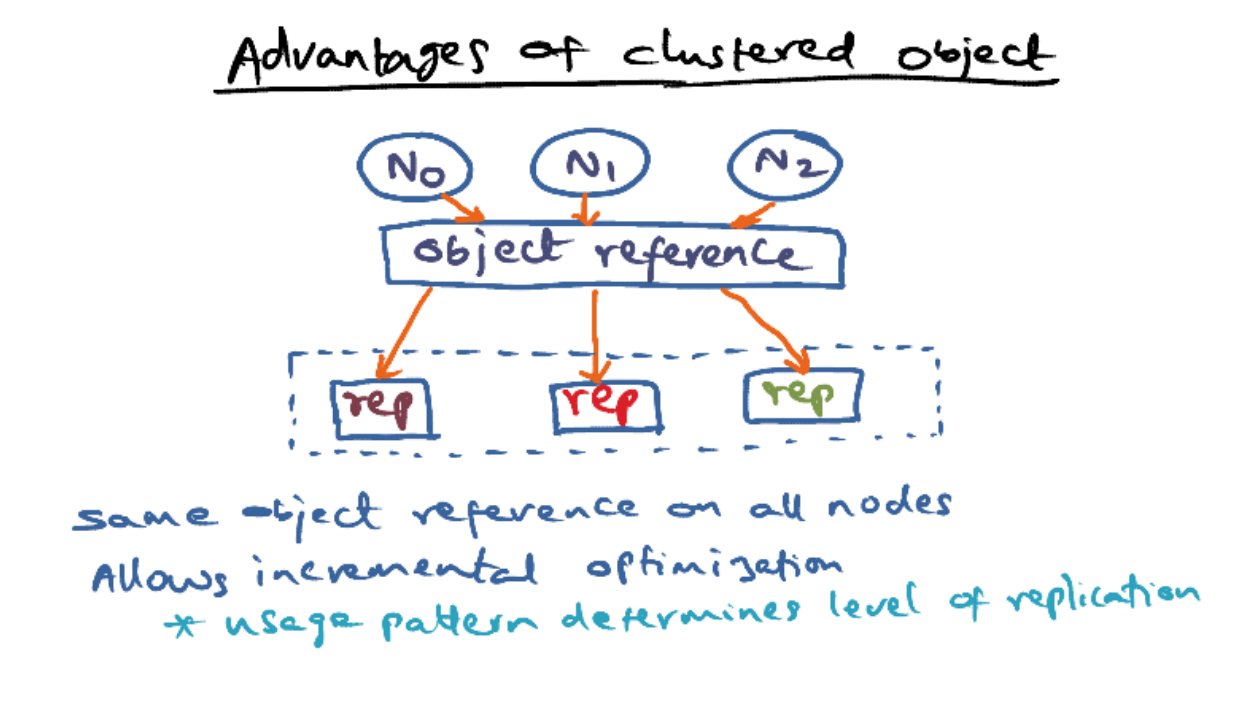 Advantages of clustered object
N0 N1 N2
object reference
rep rep rep
same object reference on all nodes
Allows incremental optimization
* usage pattern determines level of replication